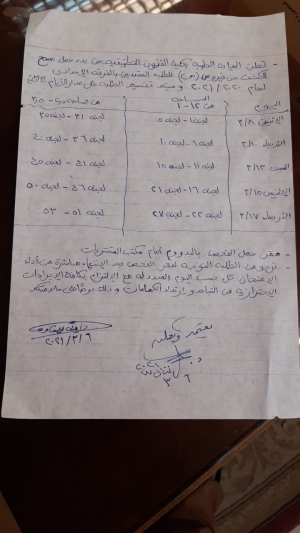 - تعلن العيادة الطبية بكلية الفنون التطبيقية عن بدء عمل مسح
للكشف عن فيروس (سي) للطلبة المستجدين بالفرقة الإعدادى
لعام ٢٠٢٠/٢٠٢١ وسيتم تقسيم الطلبة على مدار الأيام
اليوم
الساعة
من ١٢ - ١
من الساعة
الاثنين ٣/٨ لجنة ١ - لجنة ٥ لجنة ٣١ - لجنة ٣٥
الأربعاء ٣/١٠ لجنة ٦ - لجنة ١٠ لجنة ٣٦ - لجنة ٤٠
السبت ٣/١٣ لجنة ١١ - لجنة ١٥ لجنة ٤١ - لجنة ٤٥
الاثنين ٣/١٥ لجنة ١٦ - لجنة ٢١ لجنة ٤٦ - لجنة ٥٠
الأربعاء ٣/١٧ لجنة ٢٢ - لجنة ٢٧ لجنة ٥١ - لجنة ٥٣
- مقر عمل الفحص بالدور أمام مكتب المشتريات
- نرجو من الطلبة التوجه لمقر الفحص بعد الانتهاء مباشرة من أداء
الامتحان كل حسب اليوم المحدد له مع الالتزام بكافة الإجراءات
الاحترازية من التباعد وارتداء الكمامات وذلك حرصاً على سلامتكم
يعتمد ويعلن
٢٠٢١/٣/٦